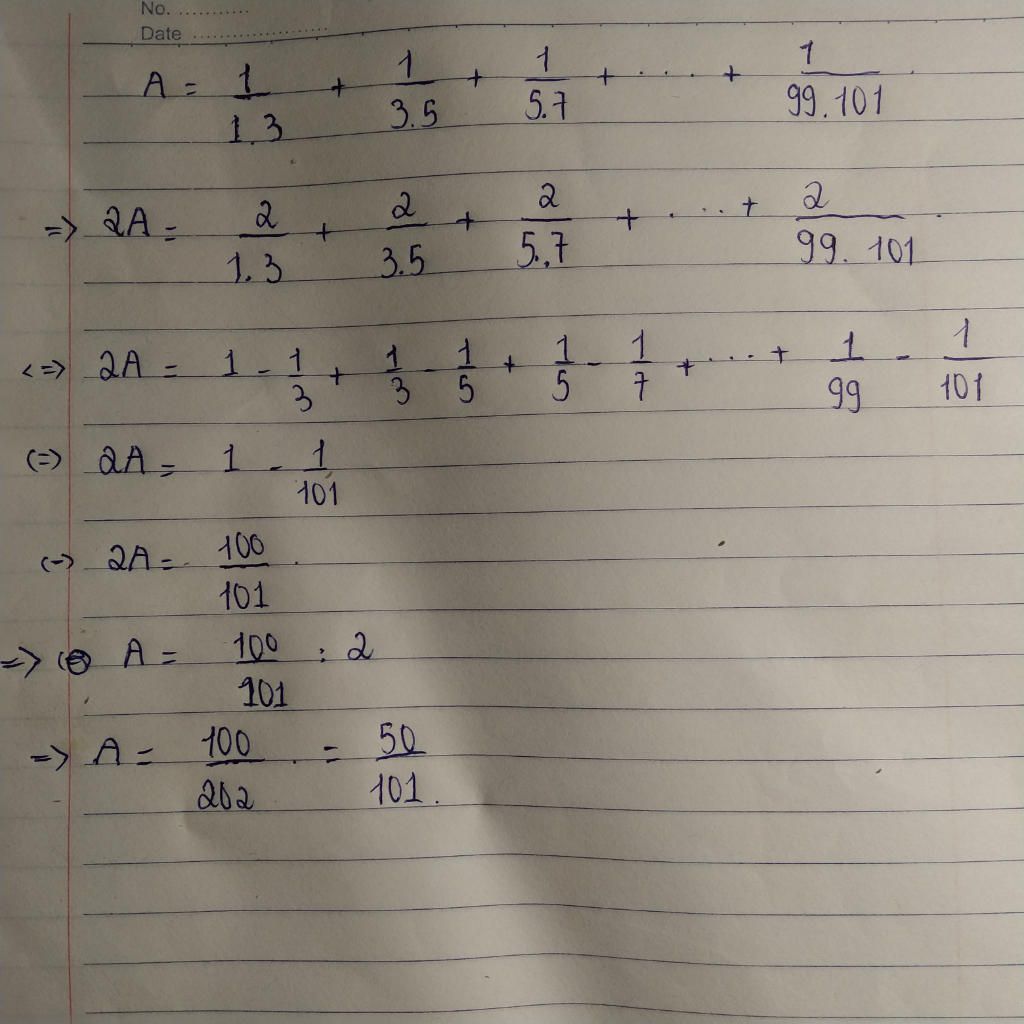 No. ...........
Date ...........................
A = 1/1.3 + 1/3.5 + 1/5.7 + .... + 1/99.101 .
=> 2A = 2/1.3 + 2/3.5 + 2/5.7 + .... + 2/99.101 .
<=> 2A = 1 - 1/3 + 1/3 - 1/5 + 1/5 - 1/7 + .... + 1/99 - 1/101
(=) 2A = 1 - 1/101
(-) 2A = 100/101 .
=> A = 100/101 : 2
=> A = 100/202 . = 50/101 .